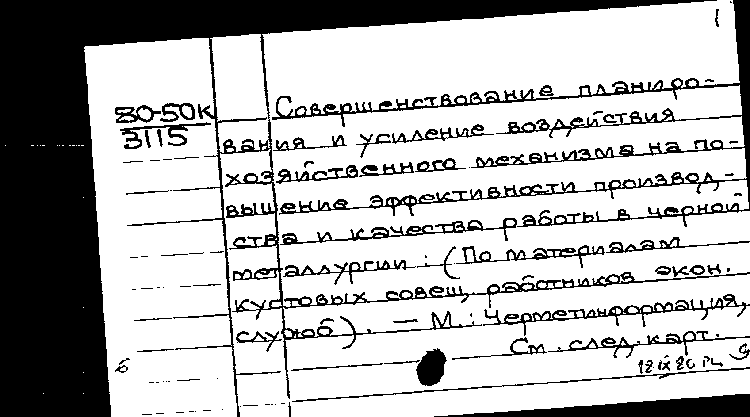 1
80-50К
3115
Совершенствование планиро-
вания и усиление воздействия
хозяйственного механизма на по-
вышение эффективности производ-
ства и качества работы в черной
металлургии: (По материалам
кустовых совещ. работников экон.
служб). — М.: Черметинформация,
См. след. карт.
б